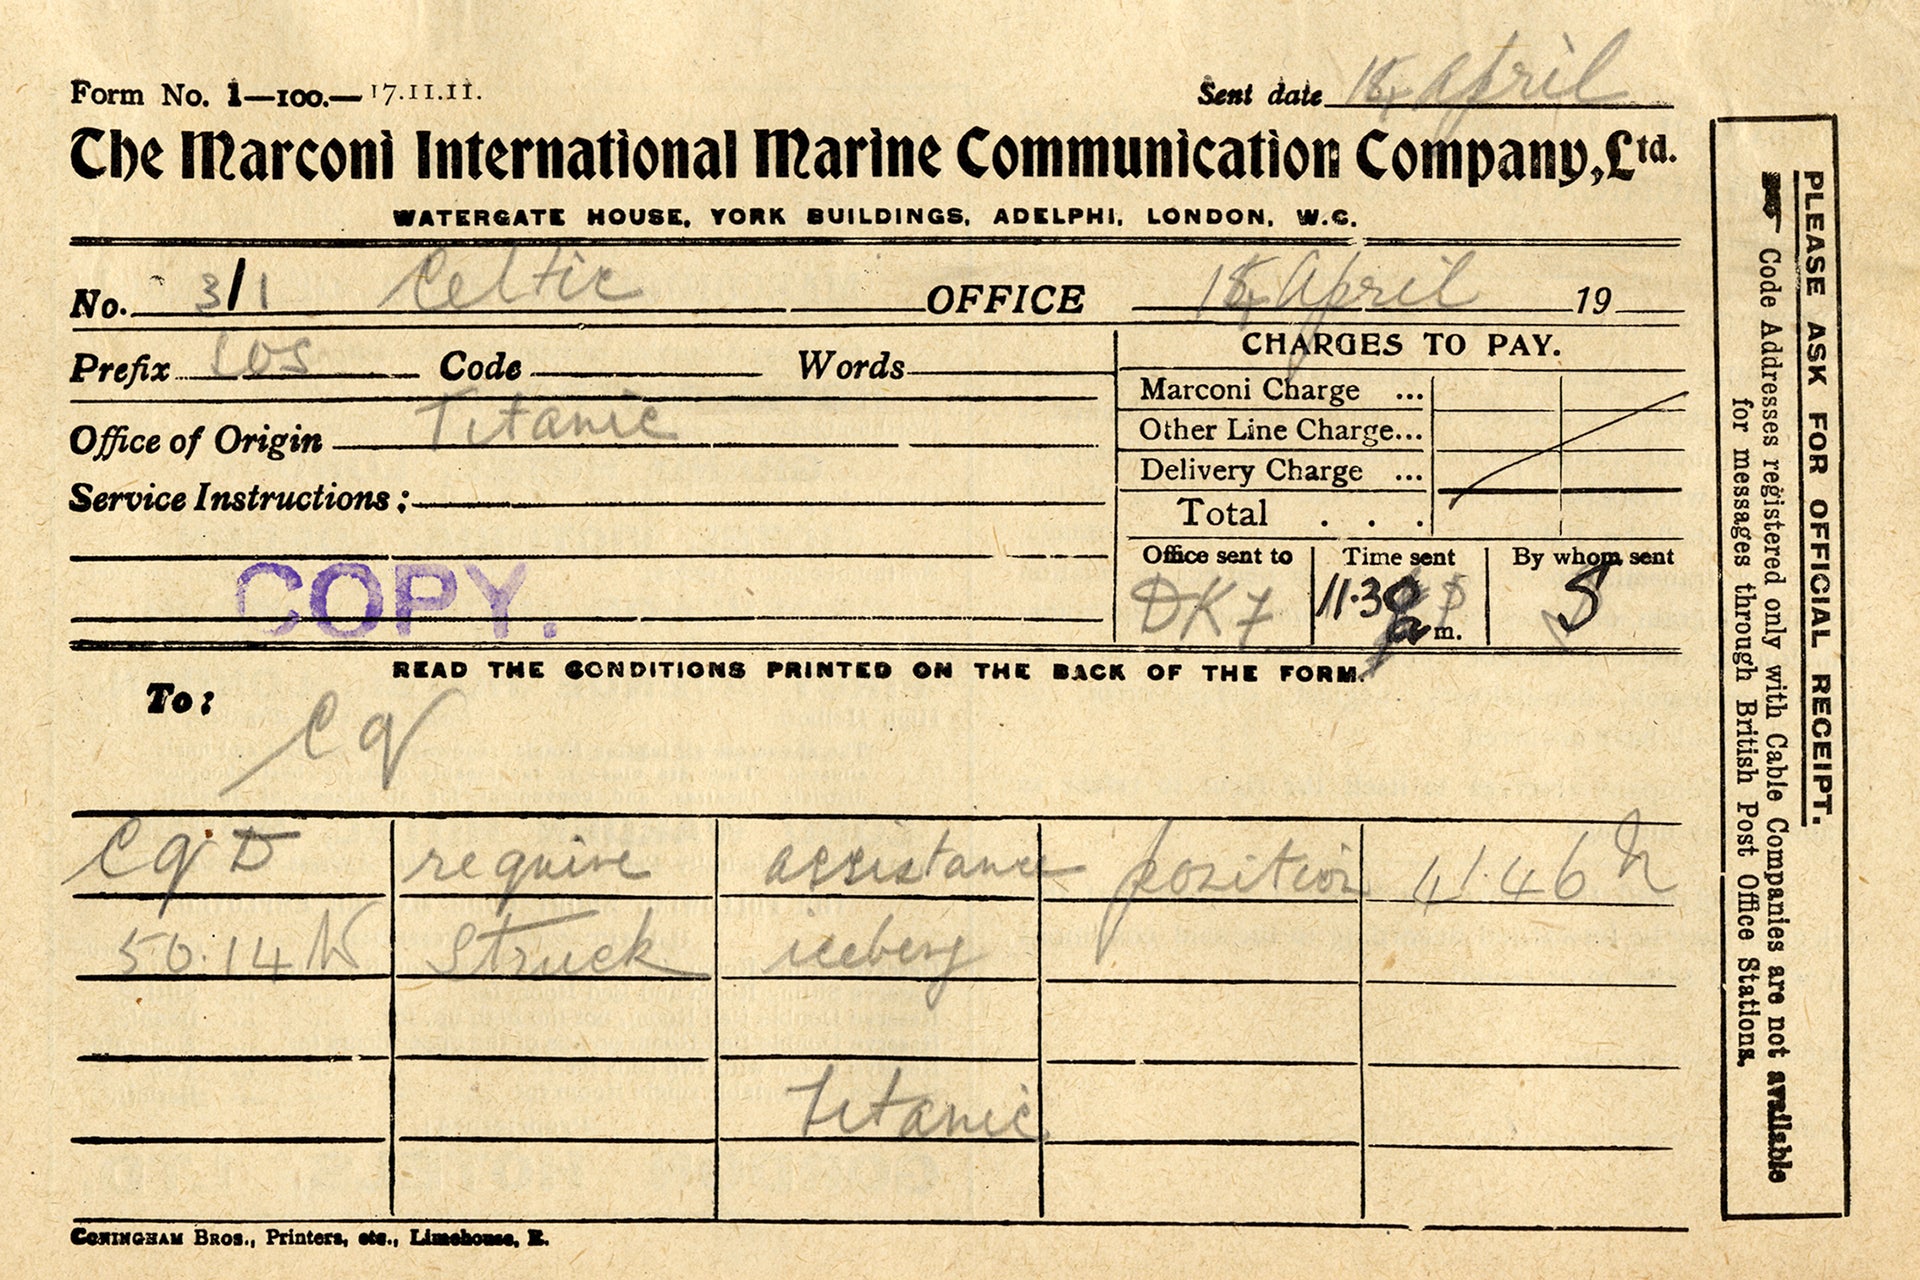 Form No. 1—100.—17.11.11.
Sent date April
The Marconi International Marine Communication Company, Ltd.
WATERGATE HOUSE, YORK BUILDINGS, ADELPHI, LONDON, W.C.
No. 3/1 Celtic OFFICE April 19
Prefix Code Words
CHARGES TO PAY.
Office of Origin Titanic
Marconi Charge ...
Other Line Charge...
Service Instructions:
Delivery Charge ...
Total . . .
COPY.
Office sent to Time sent By whom sent
DK7 11.30 a m. S
READ THE CONDITIONS PRINTED ON THE BACK OF THE FORM.
To:
Cq
CqD require assistance position 41.46 N
50.14 W Struck iceberg
Titanic
CONINGHAM BROS., Printers, etc., Limehouse, E.
PLEASE ASK FOR OFFICIAL RECEIPT.
Code Addresses registered only with Cable Companies are not available
for messages through British Post Office Stations.